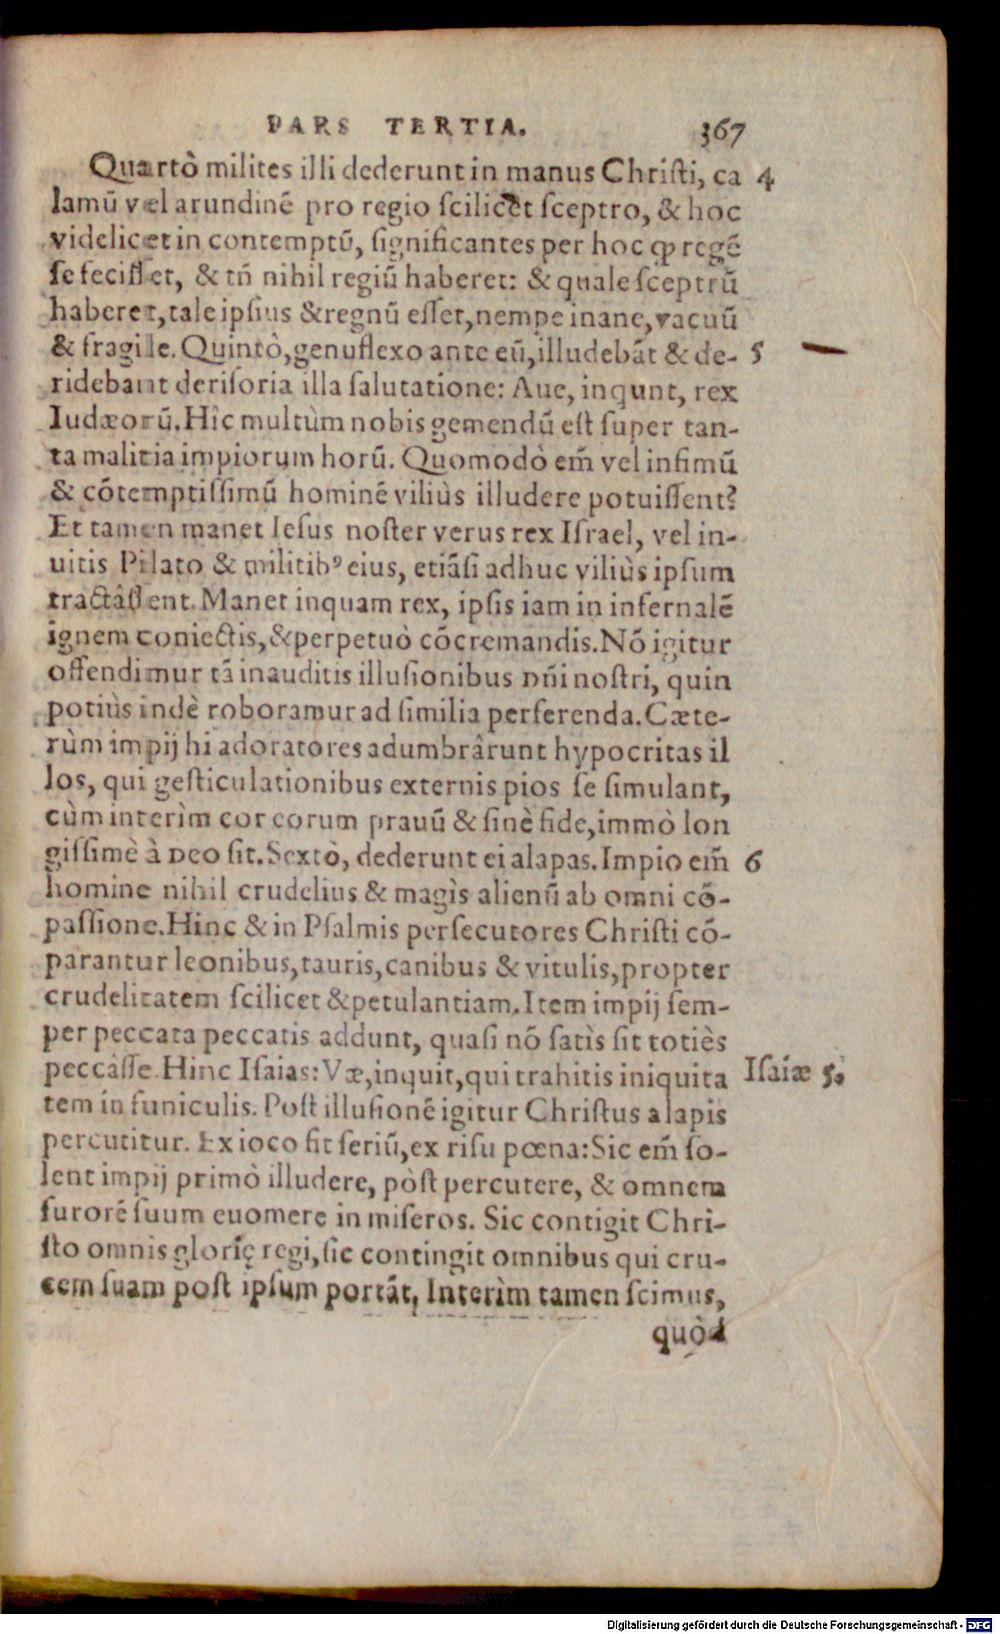 PARS TERTIA. 367
Quartò milites illi dederunt in manus Chriſti, ca 4
lamū vel arundinē pro regio ſcilicet ſceptro, & hoc
videlicet in contemptū, ſignificantes per hoc ꝙ regē
ſe feciſſet, & tñ nihil regiū haberet: & quale ſceptrū
haberet, tale ipſius & regnū eſſet, nempe inane, vacuū
& fragile. Quintò, genuflexo ante eū, illudebāt & de- 5
ridebant deriſoria illa ſalutatione: Aue, inqunt, rex
Iudæorū. Hîc multùm nobis gemendū eſt ſuper tan-
ta malitia impiorum horū. Quomodò em̄ vel infimū
& cōtemptiſſimū hominē viliùs illudere potuiſſent?
Et tamen manet Ieſus noſter verus rex Iſrael, vel in-
uitis Pilato & militibꝰ eius, etiāſi adhuc viliùs ipſum
tractâſſent. Manet inquam rex, ipſis iam in infernalē
ignem coniectis, & perpetuò cōcremandis. Nō igitur
offendimur tā inauditis illuſionibus DÑI noſtri, quin
potiùs indè roboramur ad ſimilia perferenda. Cæte-
rùm impij hi adoratores adumbrârunt hypocritas il
los, qui geſticulationibus externis pios ſe ſimulant,
cùm interìm cor eorum prauū & ſinè fide, immò lon
giſſimè à DEO ſit. Sextò, dederunt ei alapas. Impio em̄ 6
homine nihil crudelius & magìs alienū ab omni cō-
paſſione. Hinc & in Pſalmis perſecutores Chriſti cō-
parantur leonibus, tauris, canibus & vitulis, propter
crudelitatem ſcilicet & petulantiam. Item impij ſem-
per peccata peccatis addunt, quaſi nō ſatìs ſit totiès
peccâſſe. Hinc Iſaias: Væ, inquit, qui trahitis iniquita Iſaíæ 5.
tem in funiculis. Poſt illuſionē igitur Chriſtus alapis
percutitur. Ex ioco fit ſeriū, ex riſu pœna: Sic em̄ ſo-
lent impij primò illudere, pòſt percutere, & omnem
furorē ſuum euomere in miſeros. Sic contigit Chri-
ſto omnis glorię regi, ſic contingit omnibus qui cru-
cem ſuam poſt ipſum portāt, Interìm tamen ſcimus,
quòd
Digitalisierung gefördert durch die Deutsche Forschungsgemeinschaft - DFG